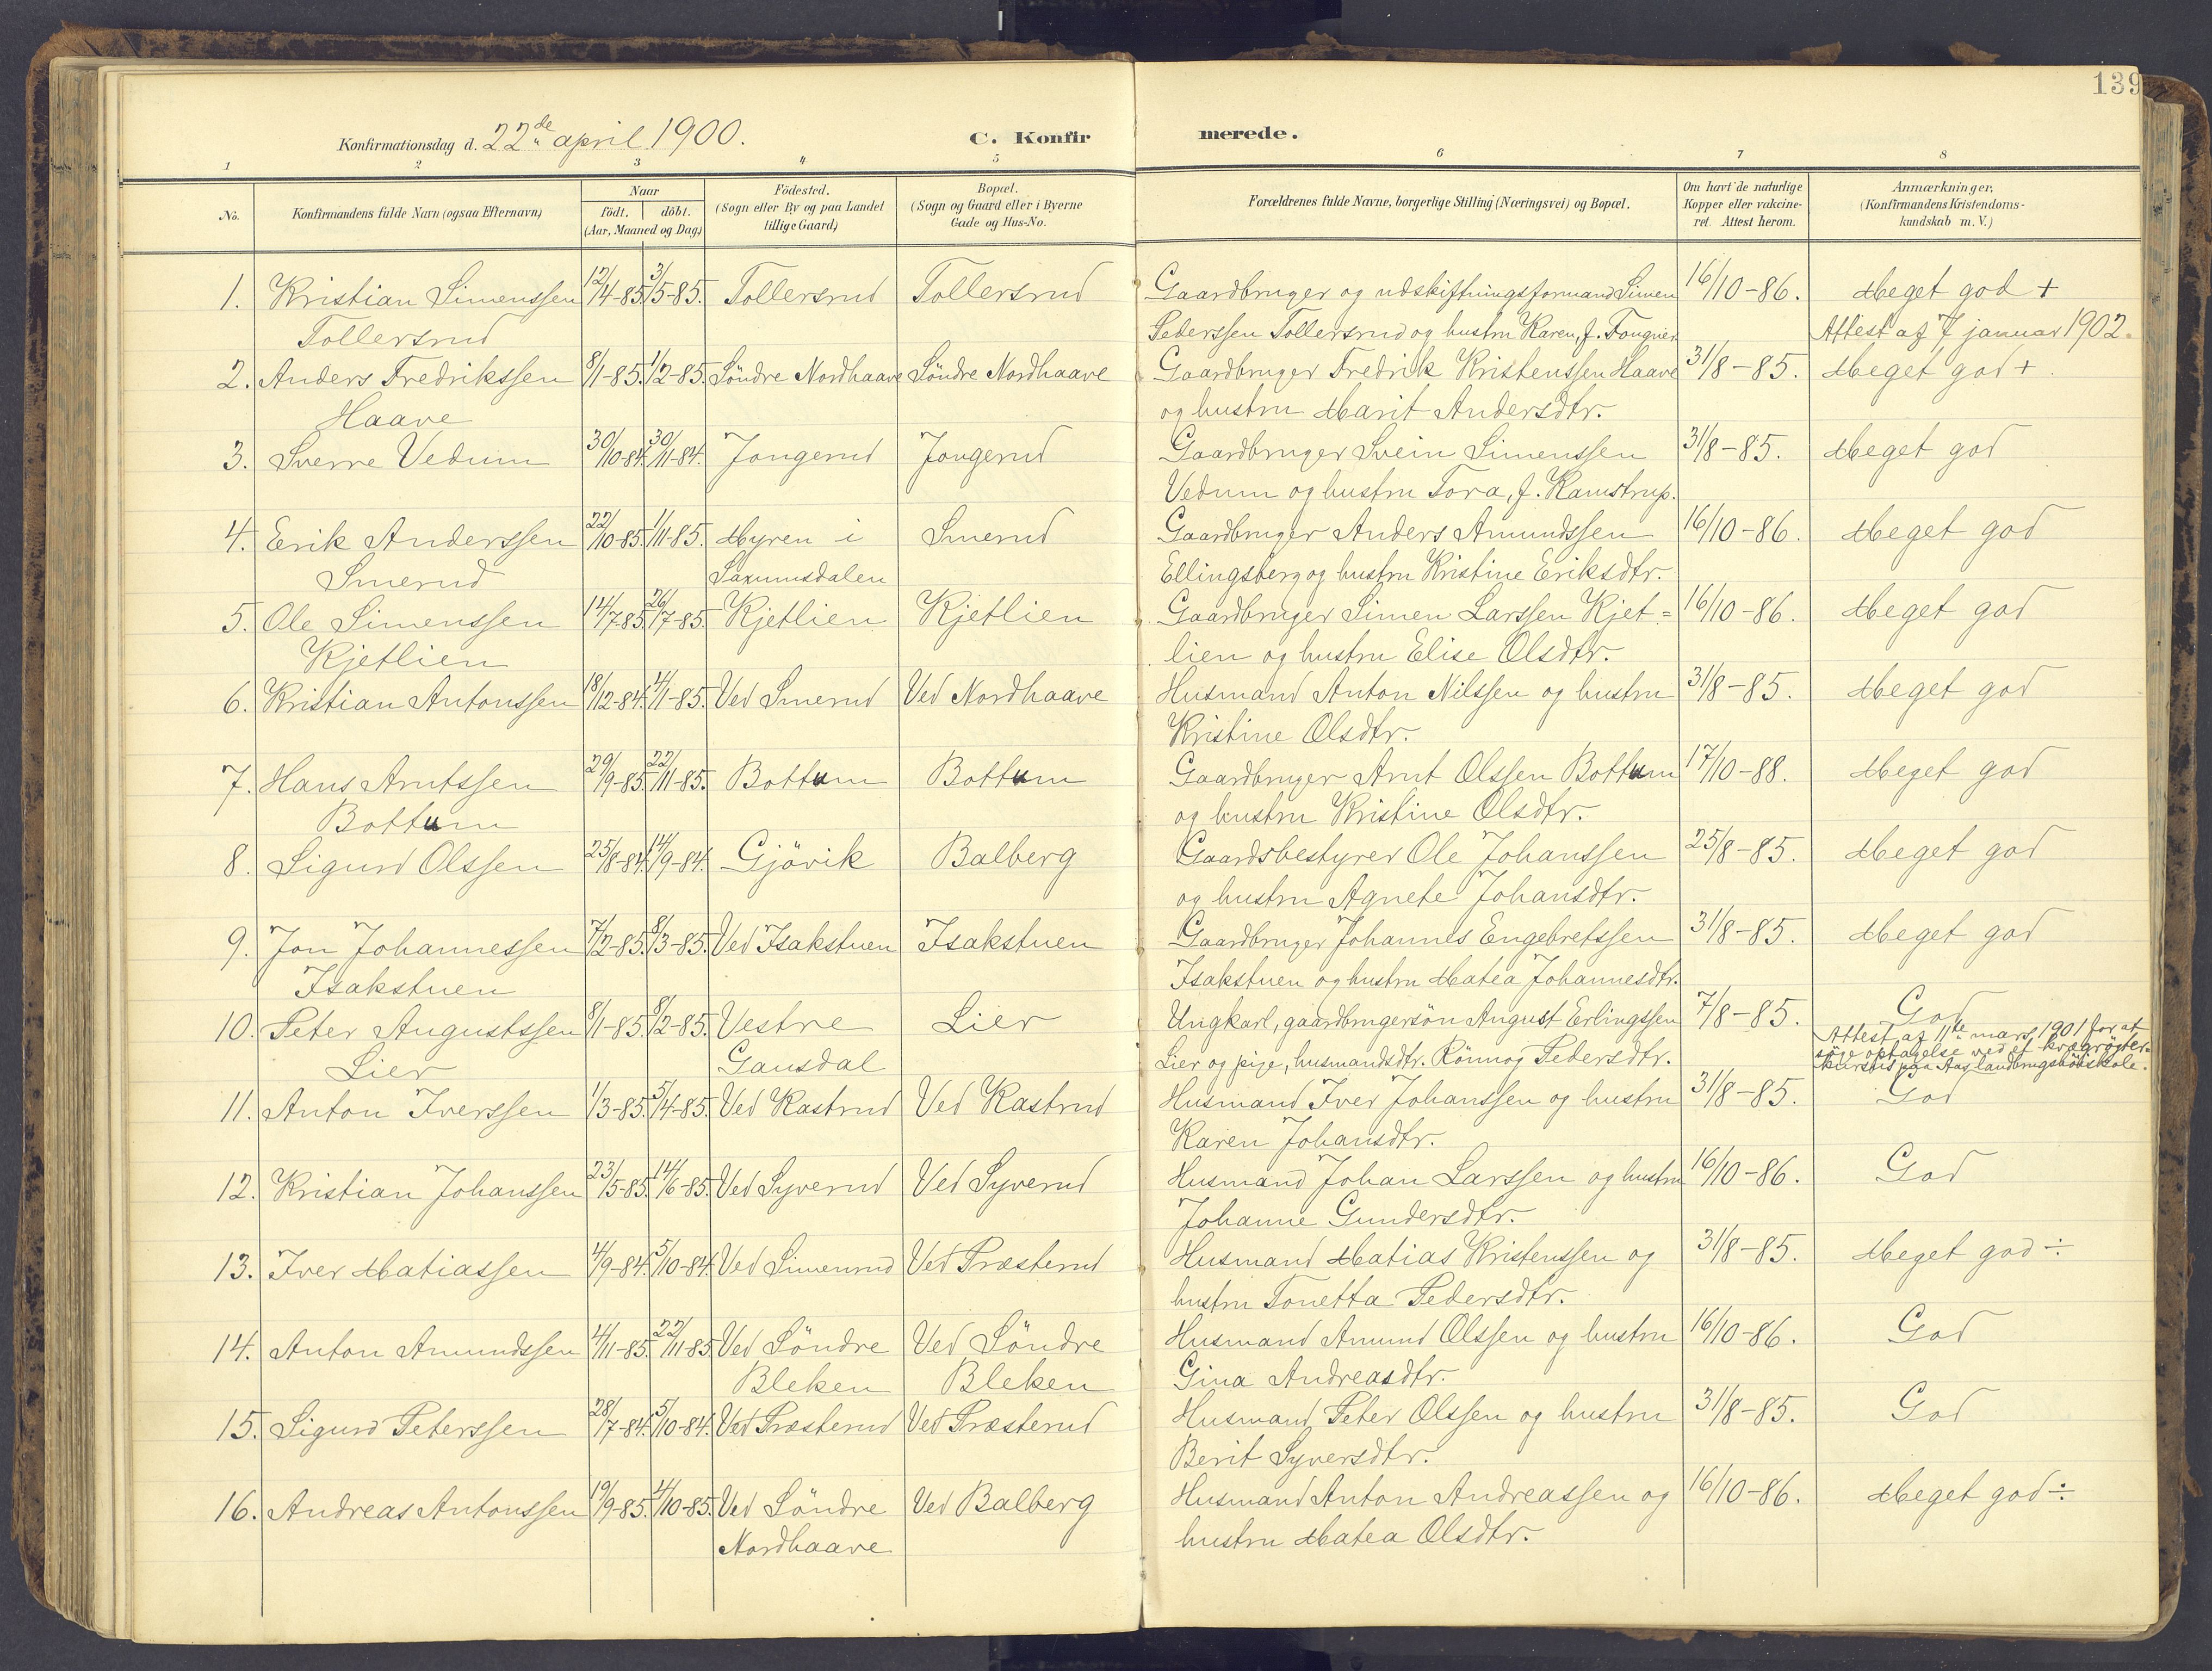 139
Konfirmationsdag d. 22de april 1900.
C. Konfirmerede.
1 2 3 4 5 6 7 8
No.
Konfirmandens fulde Navn (ogsaa Efternavn)
Naar
födt. | döbt.
(Aar, Maaned og Dag)
Födested.
(Sogn eller By og paa Landet
tillige Gaard)
Bopæl.
(Sogn og Gaard eller i Byerne
Gade og Hus-No.
Forældrenes fulde Navne, borgerlige Stilling (Næringsvei) og Bopæl.
Om havt de naturlige
Kopper eller vakcine-
ret. Attest herom.
Anmærkninger,
(Konfirmandens Kristendoms-
kundskab m. V.)
1. Kristian Simenssen 12/4-85. 3/5-85. Tollersrud Tollersrud Gaardbruger og udskiftningsformand Simen 16/10-86. Meget god +
Tollersrud Pederssen Tollersrud og hustru Karen, f. Fougner Attest af 7 januar 1902.
2. Anders Fredrikssen 8/1-85. 1/2-85. Söndre Nordhaave Söndre Nordhaave Gaardbruger Fredrik Kristenssen Haave 31/8-85. Meget god +.
Haave og hustru Marit Andersdtr.
3. Sverre Vedum 30/10-84. 30/11-84. Jongerud Jongerud Gaardbruger Svein Simenssen 31/8-85. Meget god
Vedum og hustru Tora, f. Kamstrup.
4. Erik Anderssen 22/10-85. 1/11-85. Myren i Smerud Gaardbruger Anders Amundssen 16/10-86. Meget god
Smerud Saxumsdalen Ellingsberg og hustru Kristine Eriksdtr.
5. Ole Simenssen 14/7-85. 26/7-85. Kjetlien Kjetlien Gaardbruger Simen Larssen Kjet= 16/10-86. Meget god
Kjetlien lien og hustru Elise Olsdtr.
6. Kristian Antonssen 18/12-84. 4/1-85. Ved Smerud Ved Nordhaave Husmand Anton Nilssen og hustru 31/8-85. Meget god
Kristine Olsdtr.
7. Hans Arntssen 29/9-85. 22/11-85. Bottum Bottum Gaardbruger Arnt Olssen Bottum 17/10-88. Meget god
Bottum og hustru Kristine Olsdtr.
8. Sigurd Olssen 25/8-84. 14/9-84. Gjövik Balberg Gaardsbestyrer Ole Johanssen 25/8-85. Meget god
og hustru Agnete Johansdtr.
9. Jon Johannessen 7/2-85. 8/3-85. Ved Isakstuen Isakstuen Gaardbruger Johannes Engebretssen 31/8-85. Meget god
Isakstuen Isakstuen og hustru Matea Johannesdtr.
10. Peter Augustssen 8/1-85. 8/2-85. Vestre Lier Ungkarl, gaardbrugersön August Erlingssen 7/8-85. God
Lier Gausdal Lier og pige, husmandsdtr. Rönnog Pedersdtr. Attest af 11te mars 1901 for at
söge optagelse ved et kvægrögter-
kursus paa Aas landbrugshöiskole.
11. Anton Iverssen 1/3-85. 5/4-85. Ved Kastrud Ved Kastrud Husmand Iver Johanssen og hustru 31/8-85. God
Karen Johansdtr.
12. Kristian Johanssen 23/5-85. 14/6-85. Ved Syverud Ved Syverud Husmand Johan Larssen og hustru 16/10-86. God
Johanne Gundersdtr.
13. Iver Matiassen 4/9-84. 5/10-84. Ved Simenrud Ved Præsterud Husmand Matias Kristenssen og 31/8-85. Meget god ÷
hustru Tonetta Pedersdtr.
14. Anton Amundssen 4/11-85. 22/11-85 Ved Söndre Ved Söndre Husmand Amund Olssen og hustru 16/10-86. God
Bleken Bleken Gina Andreasdtr.
15. Sigurd Peterssen 28/7-84. 5/10-84. Ved Præsterud Ved Præsterud Husmand Peter Olssen og hustru 31/8-85. God
Berit Syversdtr.
16. Andreas Antonssen 19/9-85. 4/10-85. Ved Söndre Ved Balberg Husmand Anton Andreassen og 16/10-86. Meget god ÷
Nordhaave hustru Matea Olsdtr.